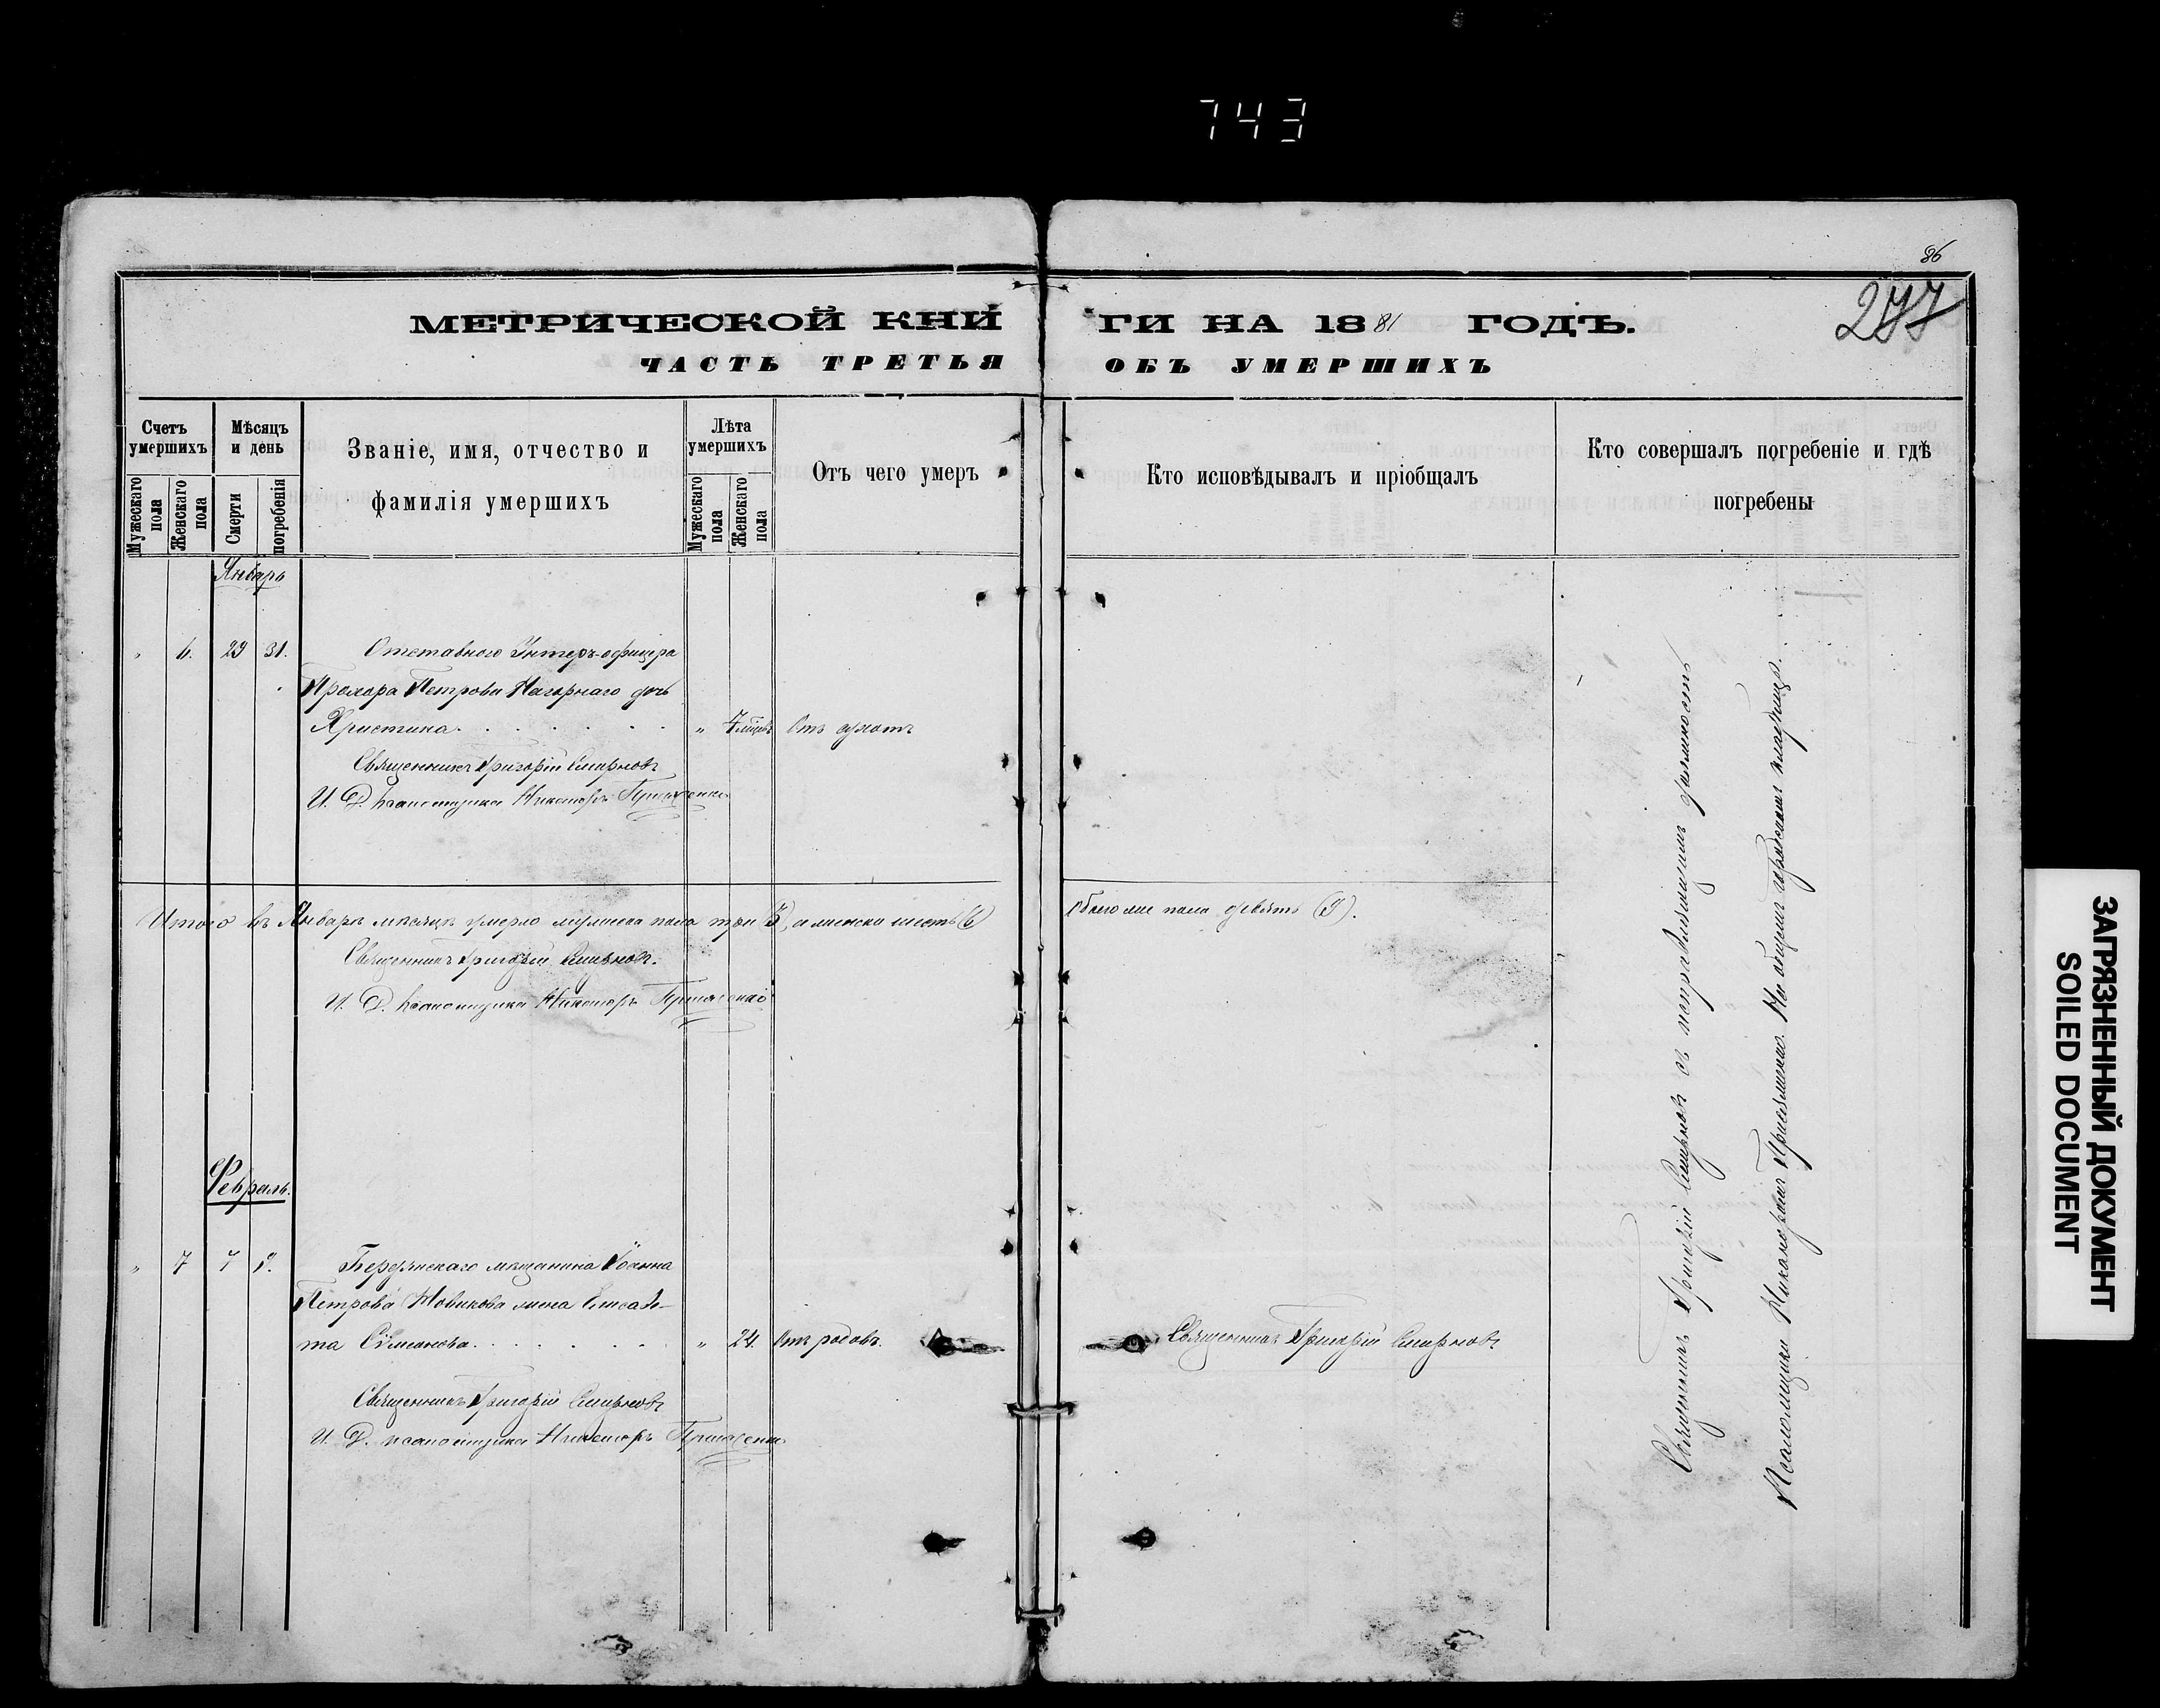 743
86
277
МЕТРИЧЕСКОЙ КНИ ГИ НА 1881 ГОДЪ.
ЧАСТЬ ТРЕТЬЯ ОБЪ УМЕРШИХЪ
Счетъ умершихъ
Мужескаго пола
Женскаго пола
Мѣсяцъ и день
Смерти
погребенія
Званіе, имя, отчество и
фамилія умершихъ
Лѣта умершихъ
Мужескаго пола
Женскаго пола
Отъ чего умеръ
Кто исповѣдывалъ и пріобщалъ
Кто совершалъ погребеніе и гдѣ
погребены
Январь
" 6. 29 31. Отставного Унтеръ-офицера
Прохора Петрова Нагорнаго дочь
Христина. " 7 мѣсяц. Отъ
Священникъ Григорій Смирновъ
И. Д. псаломщика Никаноръ
Итого въ Январѣ мѣсяцѣ умерло мужеска пола три (3), а женска шесть (6) обоего же пола девять (9).
Священникъ Григорій Смирновъ.
И. Д. псаломщика Никаноръ
Февраль.
" 7 7 9. Бердянскаго мѣщанина Іоанна
Петрова Новикова жена Елисаве-
та " 24. Отъ родовъ. Священникъ Григорій Смирновъ
Священникъ Григорій Смирновъ
И. Д. псаломщика Никаноръ
Священникъ Григорій Смирновъ съ исправляющимъ должность
Псаломщика Никаноромъ На общемъ городскомъ кладбищѣ.
ЗАГРЯЗНЕННЫЙ ДОКУМЕНТ
SOILED DOCUMENT